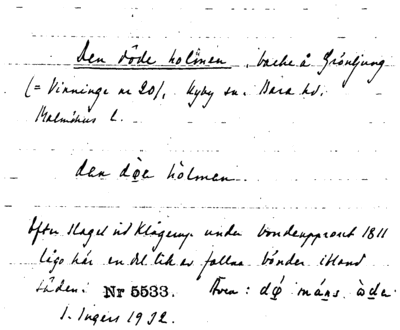 Den döde holmen, backe å Grönljung
(= Vinninge nr 20), Hyby sn. Bara hd.
Malmöhus l.
den dø̨e hòlmen.
Efter slaget vid Klågerup under bondeupproret 1811
lågo här en del lik av fallna bönder ibland
säden. Nr 5533. Även: dǿ máns
I. Ingers 1932.